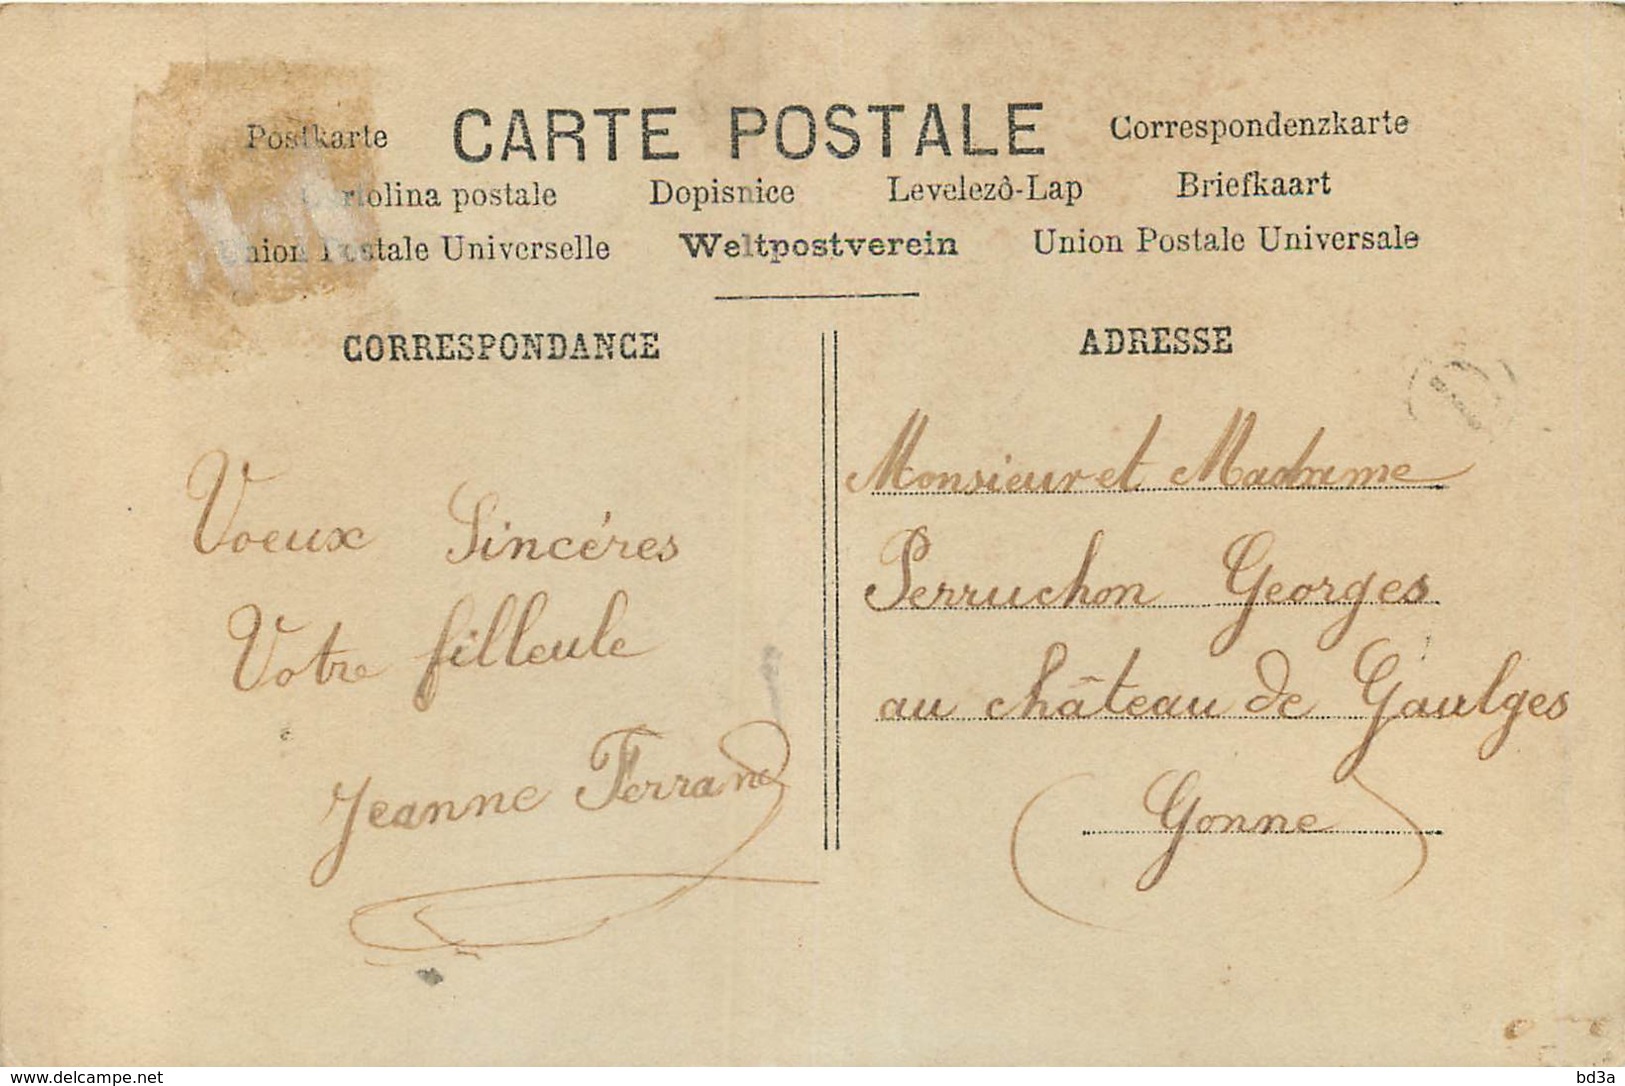 CARTE POSTALE
Postkarte
Correspondenzkarte
Cartolina postale Dopisnice Levelezô-Lap Briefkaart
Union Postale Universelle Weltpostverein Union Postale Universale
CORRESPONDANCE
Voeux Sincéres
Votre filleule
Jeanne Ferrand
ADRESSE
D
Monsieur et Madame
Perruchon Georges
au château de Gaulges
(Yonne)
www.delcampe.net
bd3a